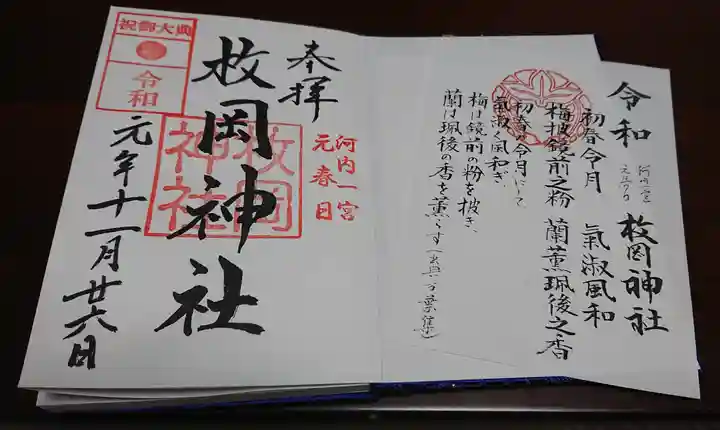 令和
初春令月 氣淑風和
梅披鏡前之粉 蘭薫珮後之香
初春の令月にして
氣淑く風和ぎ
梅は鏡前の粉を披き、
蘭は珮後の香を薫らす(出典 万葉集)
河内一宮
元春日
枚岡神社
奉拝
河内一宮
元春日
枚岡神社
枚岡
神社
祝御大典
令和
元年十一月廿六日